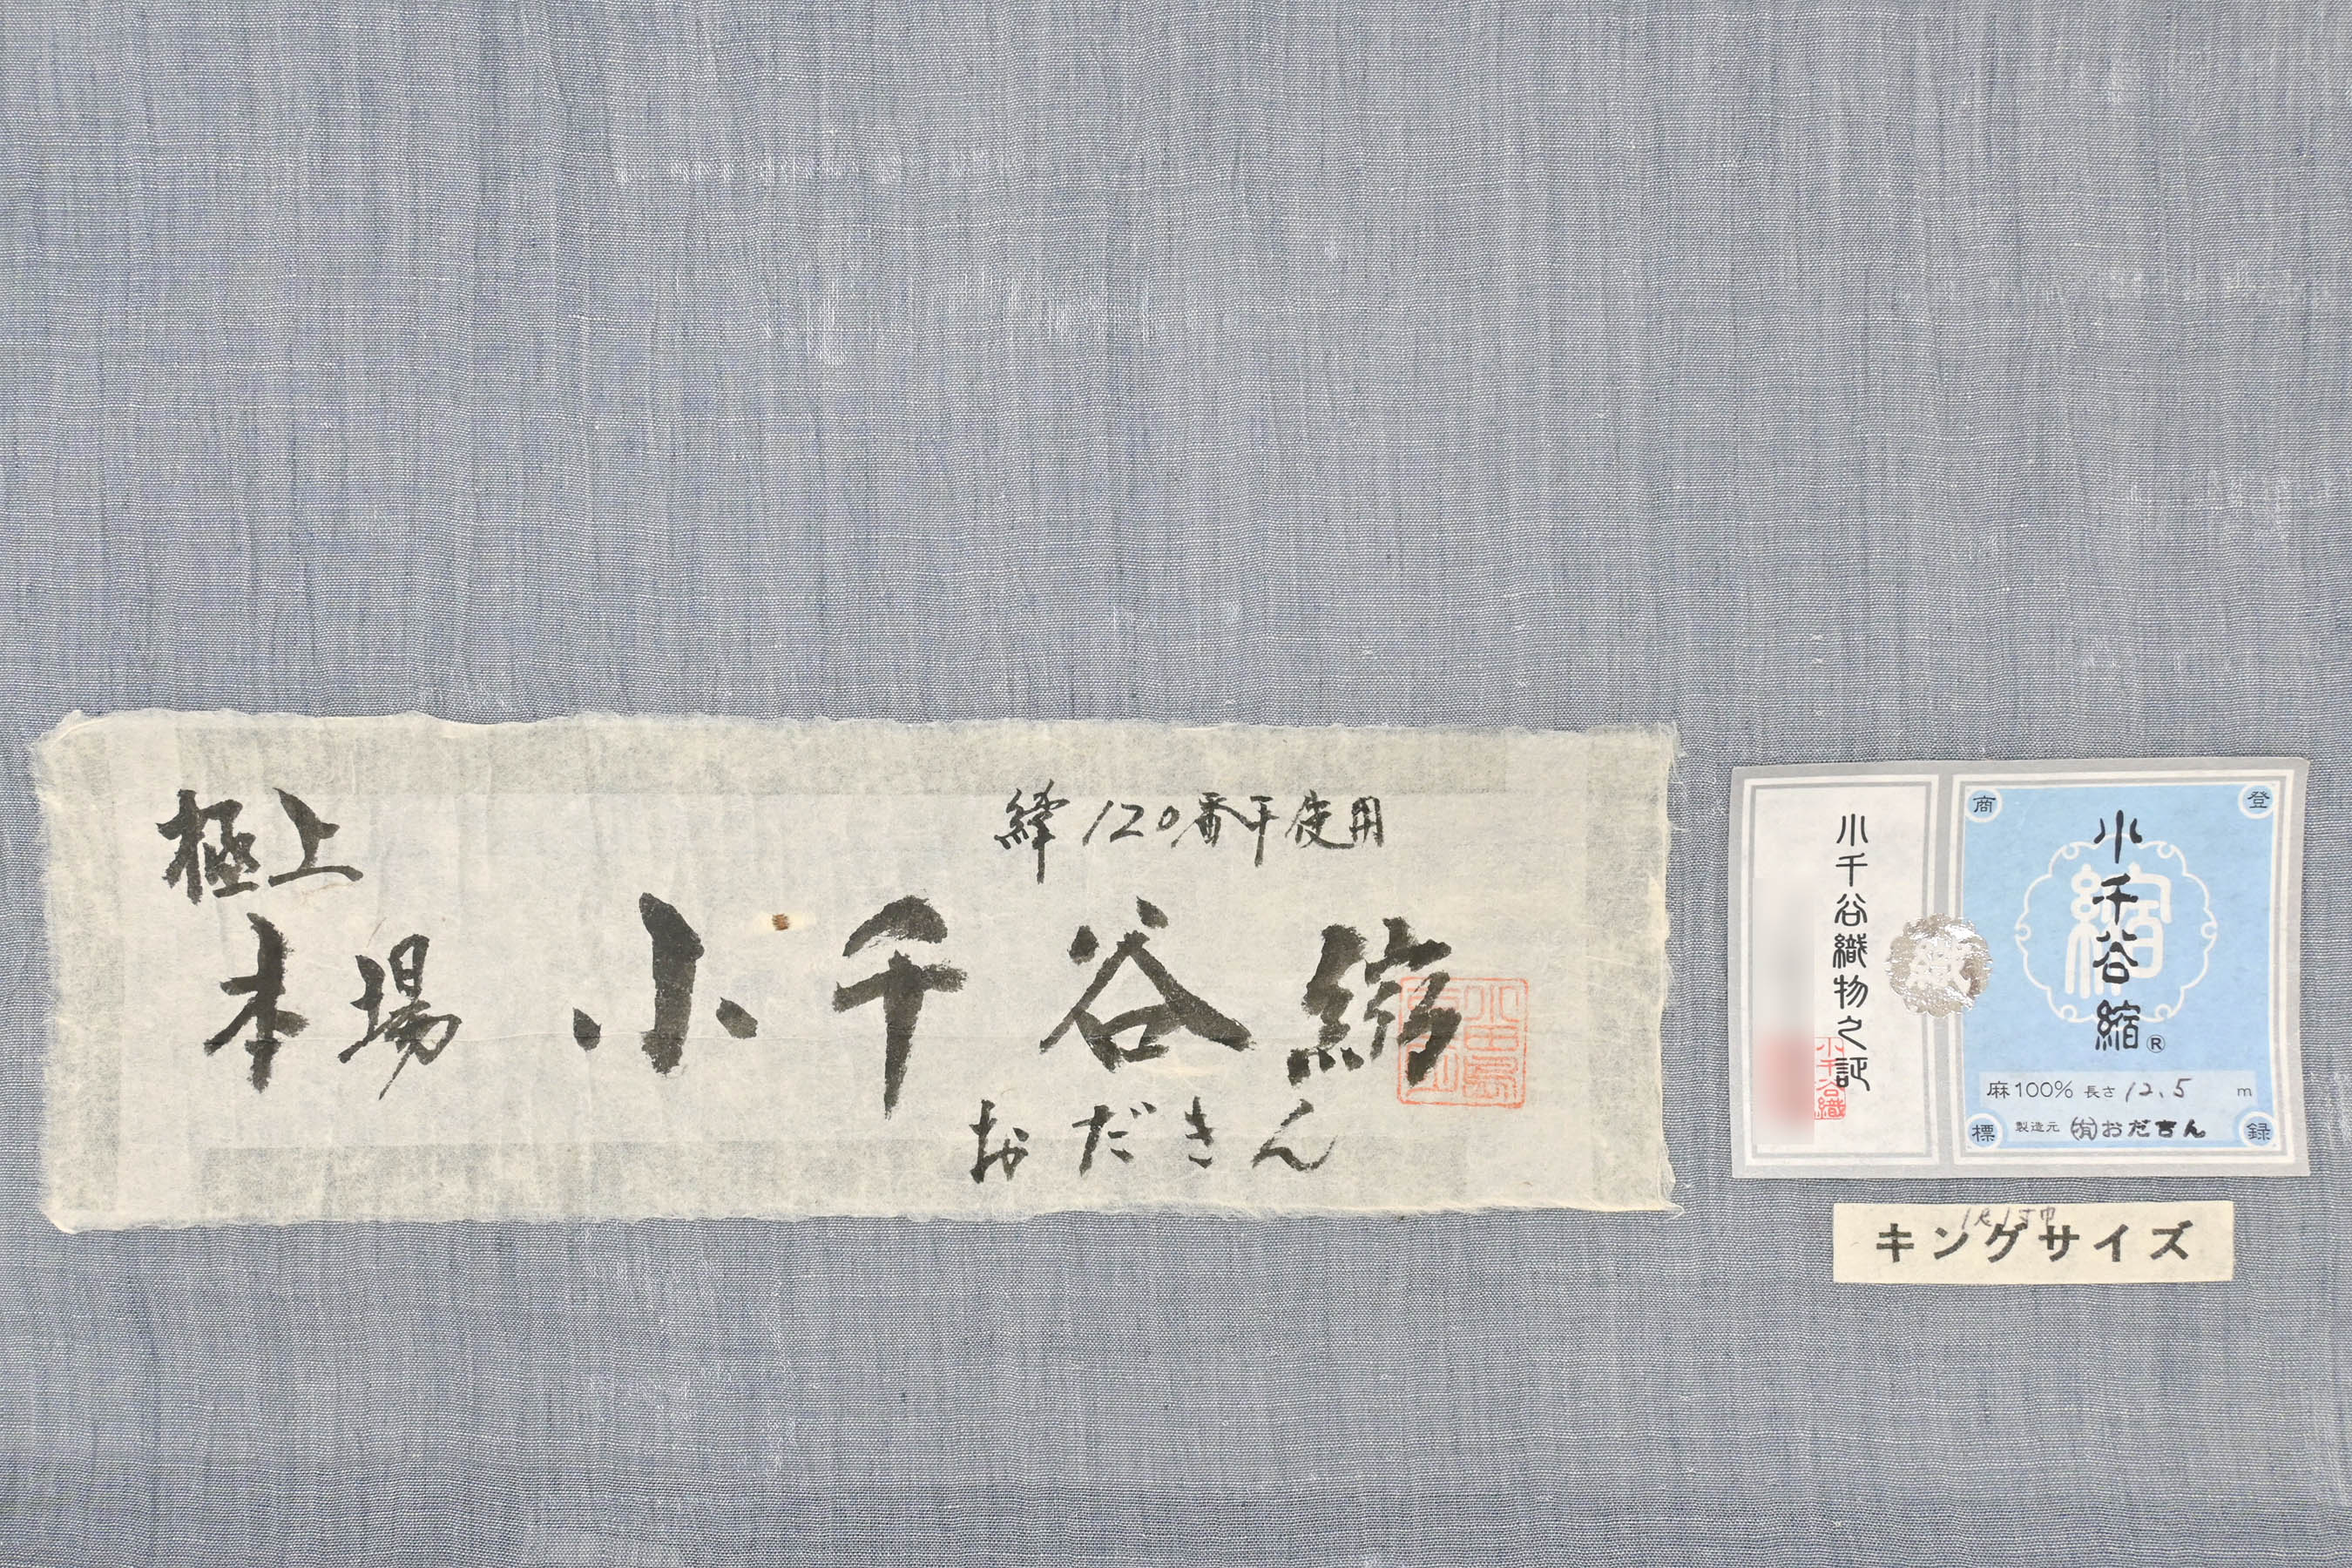 極上
緯120番手使用
本場 小千谷縮
おだきん
小千谷織物之証
小千谷織
商 登
小千谷縮®
縮
麻100% 長さ 12.5 m
標 録
製造元 ㈲おだきん
1尺1寸巾
キングサイズ